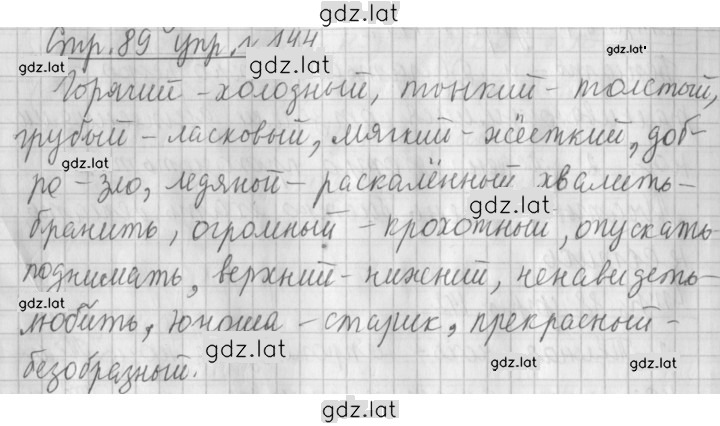 gdz.lat
Стр. 89 упр. 144
gdz.lat
gdz.lat
gdz.lat
Горячий - холозный, тонкий - толстый,
грубый - ласковый, мягкий - жёсткий, доб-
gdz.lat
ро - зло, ледяной - раскалённый хвалить -
gdz.lat
бранить, огромный - крохотный, опускать
поднимать, верхний - нижний, ненавидеть -
gdz.lat
любить, юноша - старик, прекрасный -
gdz.lat
безобразный.
gdz.lat
gdz.lat
gdz.lat